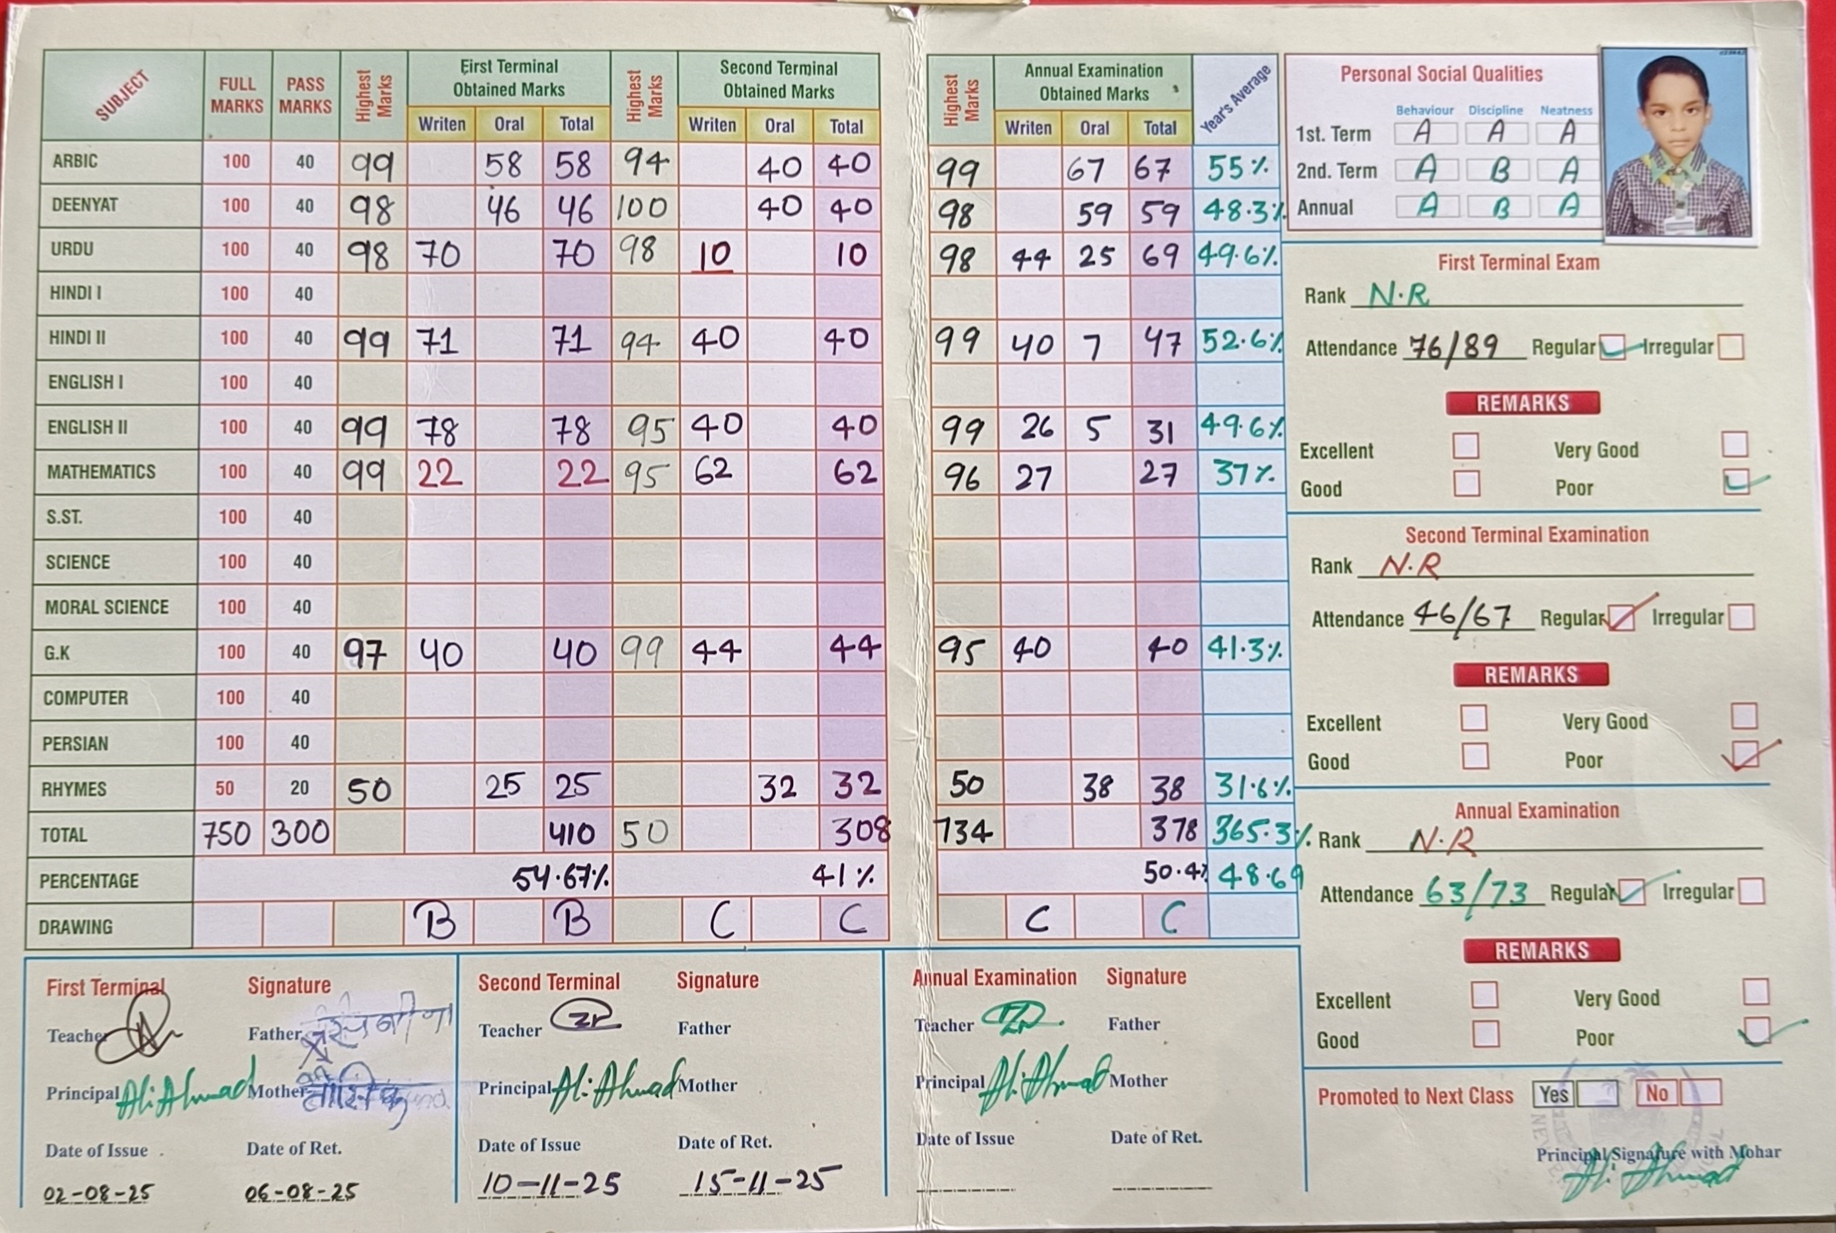 SUBJECT FULL MARKS PASS MARKS Highest Marks First Terminal Obtained Marks Highest Marks Second Terminal Obtained Marks Highest Marks Annual Examination Obtained Marks Year's Average
Writen Oral Total Writen Oral Total Writen Oral Total
ARBIC 100 40 99 58 58 94 40 40 99 67 67 55%
DEENYAT 100 40 98 46 46 100 40 40 98 59 59 48.3%
URDU 100 40 98 70 70 98 10 10 98 44 25 69 49.6%
HINDI I 100 40
HINDI II 100 40 99 71 71 94 40 40 99 40 7 47 52.6%
ENGLISH I 100 40
ENGLISH II 100 40 99 78 78 95 40 40 99 26 5 31 49.6%
MATHEMATICS 100 40 99 22 22 95 62 62 96 27 27 37%
S.ST. 100 40
SCIENCE 100 40
MORAL SCIENCE 100 40
G.K 100 40 97 40 40 99 44 44 95 40 40 41.3%
COMPUTER 100 40
PERSIAN 100 40
RHYMES 50 20 50 25 25 32 32 50 38 38 31.6%
TOTAL 750 300 410 50 308 734 378 365.3%
PERCENTAGE 54.67% 41% 50.4% 48.69
DRAWING B B C C C C
Personal Social Qualities
Behaviour Discipline Neatness
1st. Term A A A
2nd. Term A B A
Annual A B A
First Terminal Exam
Rank N.R
Attendance 76/89 Regular Irregular
REMARKS
Excellent Very Good
Good Poor
Second Terminal Examination
Rank N.R
Attendance 46/67 Regular Irregular
REMARKS
Excellent Very Good
Good Poor
Annual Examination
Rank N.R
Attendance 63/73 Regular Irregular
REMARKS
Excellent Very Good
Good Poor
Promoted to Next Class Yes No
Principal Signature with Mohar
Ali Ahmad
First Terminal Signature
Teacher Father
Principal Ali Ahmad Mother
Date of Issue Date of Ret.
02-08-25 06-08-25
Second Terminal Signature
Teacher Father
Principal Ali Ahmad Mother
Date of Issue Date of Ret.
10-11-25 15-11-25
Annual Examination Signature
Teacher Father
Principal Ali Ahmad Mother
Date of Issue Date of Ret.